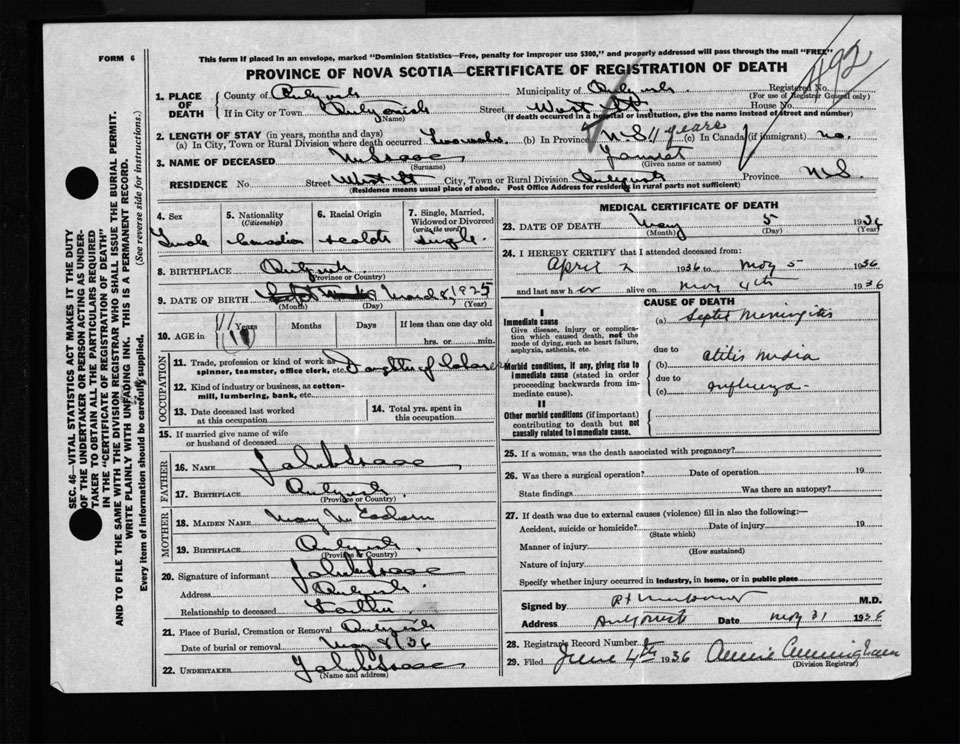 FORM 6
This form if placed in an envelope, marked "Dominion Statistics—Free, penalty for improper use $300," and properly addressed will pass through the mail "FREE"
PROVINCE OF NOVA SCOTIA—CERTIFICATE OF REGISTRATION OF DEATH
492
SEC. 46—VITAL STATISTICS ACT MAKES IT THE DUTY
OF THE UNDERTAKER OR PERSON ACTING AS UNDER-
TAKER TO OBTAIN ALL THE PARTICULARS REQUIRED
IN THE "CERTIFICATE OF REGISTRATION OF DEATH"
AND TO FILE THE SAME WITH THE DIVISION REGISTRAR WHO SHALL ISSUE THE BURIAL PERMIT.
WRITE PLAINLY WITH UNFADING INK. THIS IS A PERMANENT RECORD.
Every item of information should be carefully supplied. (See reverse side for instructions.)
1. PLACE OF DEATH
County of Antigonish Municipality of Antigonish Registered No.
(For use of Registrar General only)
If in City or Town Antigonish Street West St House No.
(Name) (If death occurred in a hospital or institution, give the name instead of street and number)
2. LENGTH OF STAY (in years, months and days)
(a) In City, Town or Rural Division where death occurred (b) In Province N S 11 years (c) In Canada (if immigrant) no.
3. NAME OF DECEASED McIsaac
(Surname) (Given name or names)
RESIDENCE No Street West St City, Town or Rural Division Antigonish Province N S.
(Residence means usual place of abode. Post Office Address for residents in rural parts not sufficient)
4. Sex 5. Nationality 6. Racial Origin 7. Single, Married,
(Citizenship) Widowed or Divorced
(write the word)
Female Canadian Scotch Single
8. BIRTHPLACE Antigonish
(Province or Country)
9. DATE OF BIRTH March 8, 1925
(Month) (Day) (Year)
10. AGE in 11 Years Months Days If less than one day old
hrs. or min.
OCCUPATION
11. Trade, profession or kind of work as Daughter of laborer
spinner, teamster, office clerk, etc.
12. Kind of industry or business, as cotton-
mill, lumbering, bank, etc.
13. Date deceased last worked 14. Total yrs. spent in
at this occupation this occupation.
15. If married give name of wife
or husband of deceased
FATHER
16. NAME John McIsaac
17. BIRTHPLACE Antigonish.
(Province or Country)
MOTHER
18. MAIDEN NAME Mary McEachern
19. BIRTHPLACE Antigonish.
(Province or Country)
20. Signature of informant John McIsaac
Address Antigonish.
Relationship to deceased Father
21. Place of Burial, Cremation or Removal Antigonish
Date of burial or removal May 8/36
22. UNDERTAKER John McIsaac
(Name and address)
MEDICAL CERTIFICATE OF DEATH
23. DATE OF DEATH May 5 1936
(Month) (Day) (Year)
24. I HEREBY CERTIFY that I attended deceased from:
April 2 1936 to May 5 1936
and last saw her alive on May 4th 1936
CAUSE OF DEATH
I
Immediate cause
Give disease, injury or complica-
tion which caused death, not the
mode of dying, such as heart failure,
asphyxia, asthenia, etc.
(a) Septic Meningitis
due to
Morbid conditions, if any, giving rise to
immediate cause (stated in order
proceeding backwards from im-
mediate cause).
(b) Otitis Media
due to
(c) Influenza
II
Other morbid conditions (if important)
contributing to death but not
causally related to immediate cause.
25. If a woman, was the death associated with pregnancy?
26. Was there a surgical operation? Date of operation 19
State findings Was there an autopsy?
27. If death was due to external causes (violence) fill in also the following:—
Accident, suicide or homicide? Date of injury 19
(State which)
Manner of injury
(How sustained)
Nature of injury
Specify whether injury occurred in Industry, in home, or in public place
Signed by M.D.
Address Antigonish Date May 31 1936
28. Registrar's Record Number
29. Filed June 4th 1936 Annie Cunningham
(Division Registrar)